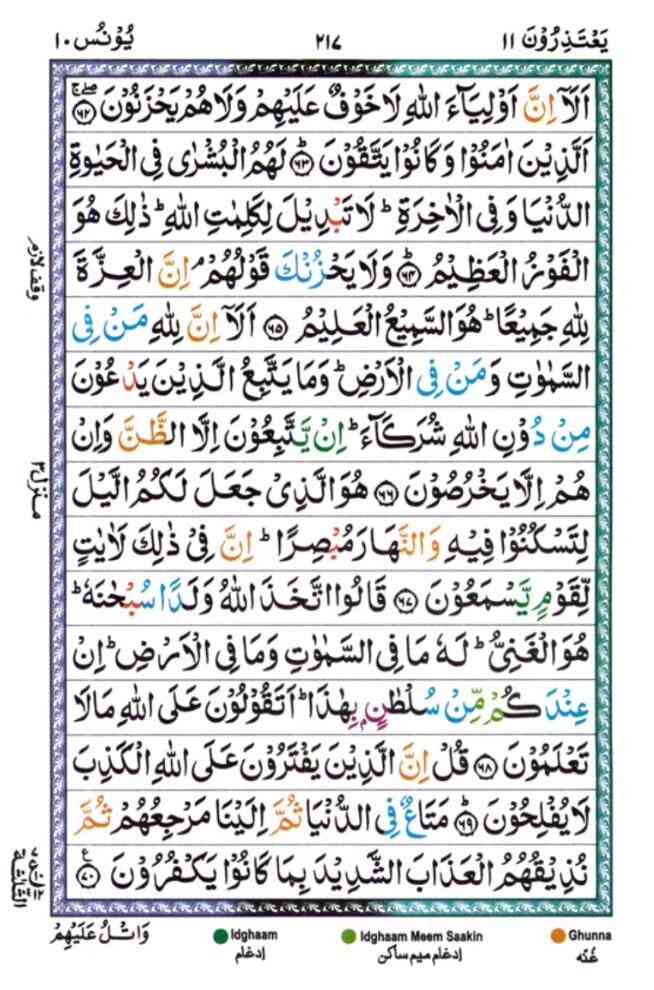 یَعْتَذِرُوْنَ ۱۱
۲۱۷
یُوْنُس ۱۰
اَلَاۤ اِنَّ اَوْلِیَآءَ اللهِ لَا خَوْفٌ عَلَیْهِمْ وَلَا هُمْ یَحْزَنُوْنَ ۚۖ ﴿۶۲﴾
الَّذِیْنَ اٰمَنُوْا وَ كَانُوْا یَتَّقُوْنَ ؕ﴿۶۳﴾ لَهُمُ الْبُشْرٰی فِی الْحَیٰوةِ
الدُّنْیَا وَ فِی الْاٰخِرَةِ ؕ لَا تَبْدِیْلَ لِكَلِمٰتِ اللهِ ؕ ذٰلِكَ هُوَ
الْفَوْزُ الْعَظِیْمُ ؕ﴿۶۴﴾ وَلَا یَحْزُنْكَ قَوْلُهُمْ ۘ اِنَّ الْعِزَّةَ
لِلّٰهِ جَمِیْعًا ؕ هُوَ السَّمِیْعُ الْعَلِیْمُ ﴿۶۵﴾ اَلَاۤ اِنَّ لِلّٰهِ مَنْ فِی
السَّمٰوٰتِ وَمَنْ فِی الْاَرْضِ ؕ وَمَا یَتَّبِعُ الَّذِیْنَ یَدْعُوْنَ
مِنْ دُوْنِ اللهِ شُرَكَآءَ ؕ اِنْ یَّتَّبِعُوْنَ اِلَّا الظَّنَّ وَاِنْ
هُمْ اِلَّا یَخْرُصُوْنَ ﴿۶۶﴾ هُوَ الَّذِیْ جَعَلَ لَكُمُ الَّیْلَ
لِتَسْكُنُوْا فِیْهِ وَالنَّهَارَ مُبْصِرًا ؕ اِنَّ فِیْ ذٰلِكَ لَاٰیٰتٍ
لِّقَوْمٍ یَّسْمَعُوْنَ ﴿۶۷﴾ قَالُوا اتَّخَذَ اللهُ وَلَدًا سُبْحٰنَهٗ ؕ
هُوَ الْغَنِیُّ ؕ لَهٗ مَا فِی السَّمٰوٰتِ وَمَا فِی الْاَرْضِ ؕ اِنْ
عِنْدَكُمْ مِّنْ سُلْطٰنٍۭ بِهٰذَا ؕ اَتَقُوْلُوْنَ عَلَی اللهِ مَا لَا
تَعْلَمُوْنَ ﴿۶۸﴾ قُلْ اِنَّ الَّذِیْنَ یَفْتَرُوْنَ عَلَی اللهِ الْكَذِبَ
لَا یُفْلِحُوْنَ ؕ﴿۶۹﴾ مَتَاعٌ فِی الدُّنْیَا ثُمَّ اِلَیْنَا مَرْجِعُهُمْ ثُمَّ
نُذِیْقُهُمُ الْعَذَابَ الشَّدِیْدَ بِمَا كَانُوْا یَكْفُرُوْنَ ﴿۷۰﴾ ع
وقف لازم
منزل ۳
وَاتْلُ عَلَیْهِمْ
Idghaam
ادغام
Idghaam Meem Saakin
ادغام میم ساکن
Ghunna
غُنّہ